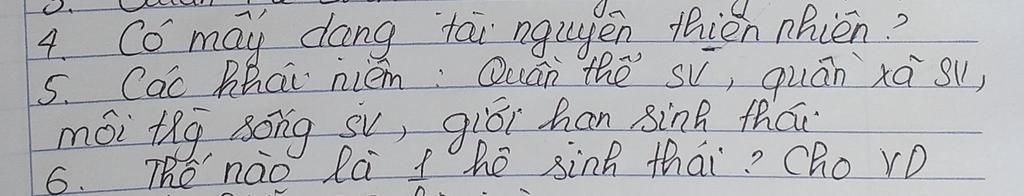 4. Có mấy dạng tài nguyên thiên nhiên?
5. Các khái niệm: Quần thể SV, quần xã SV,
môi trg sống SV, giới hạn sinh thái
6. Thế nào là 1 hệ sinh thái? Cho VD